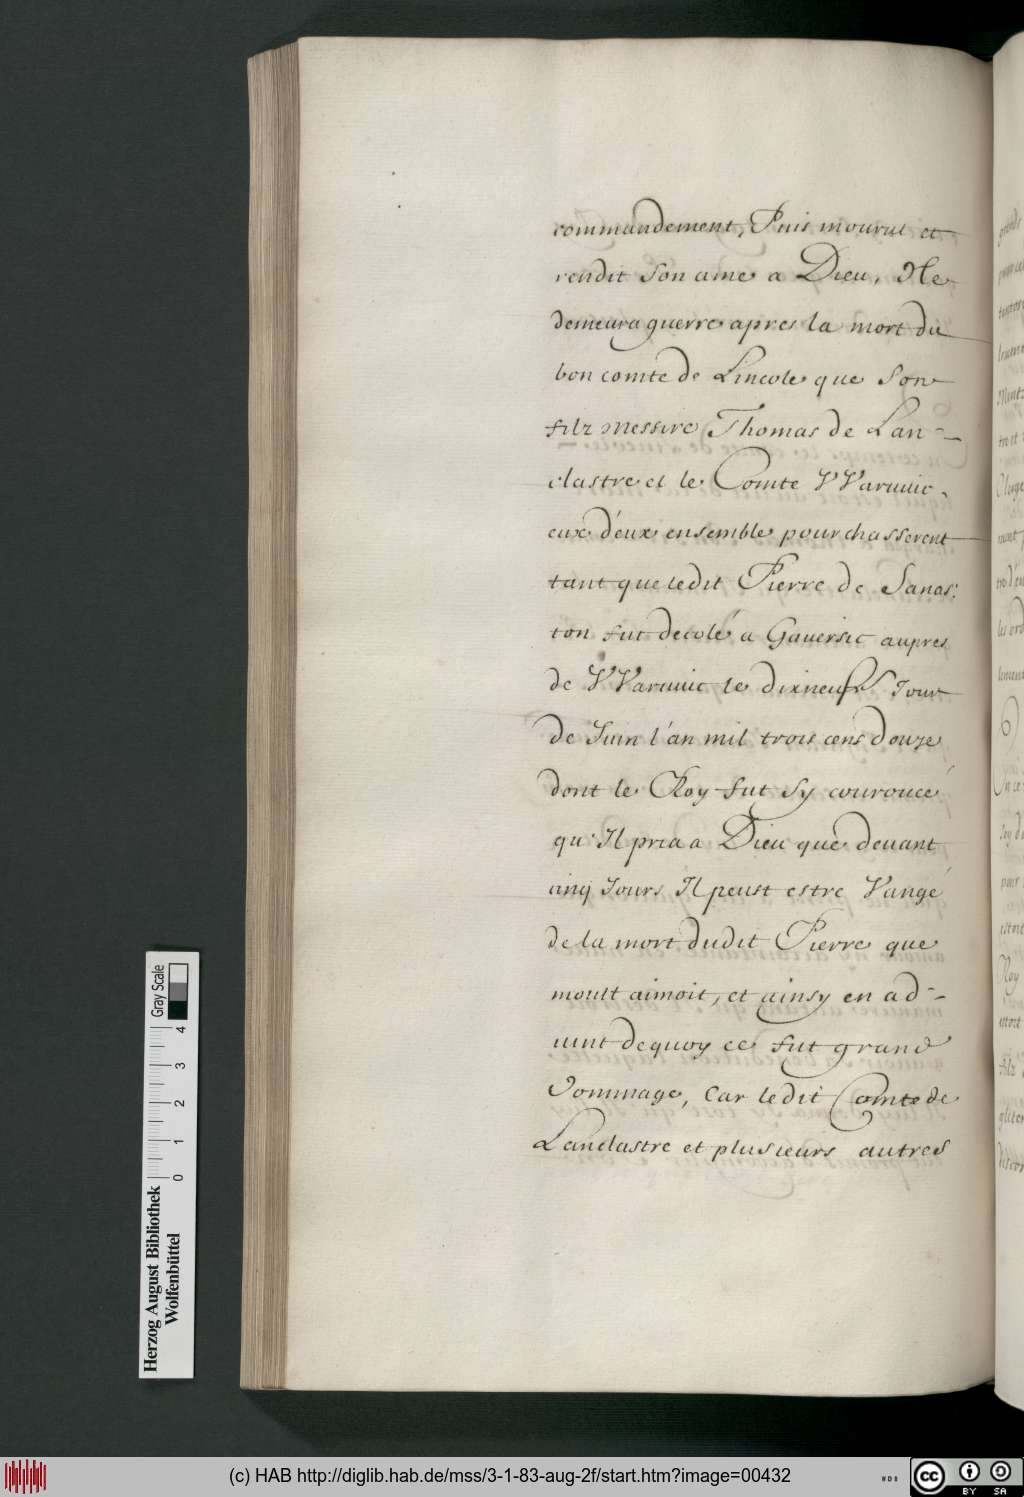 commandement, Puis mourut et
rendit son ame a Dieu, Ne
demeura guerre apres la mort du
bon comte de Lincole que son
filz messire Thomas de Lan-
clastre et le Comte VVaruuic,
eux deux ensemble pourchasserent
tant que ledit Pierre de Sanas:
ton fut decolé a Gaversic aupres
de VVaruuic le dixneufs Jour
de Juin l'an mil trois cens douze
dont le Roy fut sy couroucé
qu'Il pria a Dieu que devant
cinq Jours Il peust estre Vangé
de la mort dudit Pierre que
moult aimoit, et ainsy en ad-
uint dequoy ce fut grand
dommage, Car ledit Comte de
Lanclastre et plusieurs autres
Herzog August Bibliothek
Wolfenbüttel
0 1 2 3 4
Gray Scale
(c) HAB http://diglib.hab.de/mss/3-1-83-aug-2f/start.htm?image=00432
WDB
cc BY SA